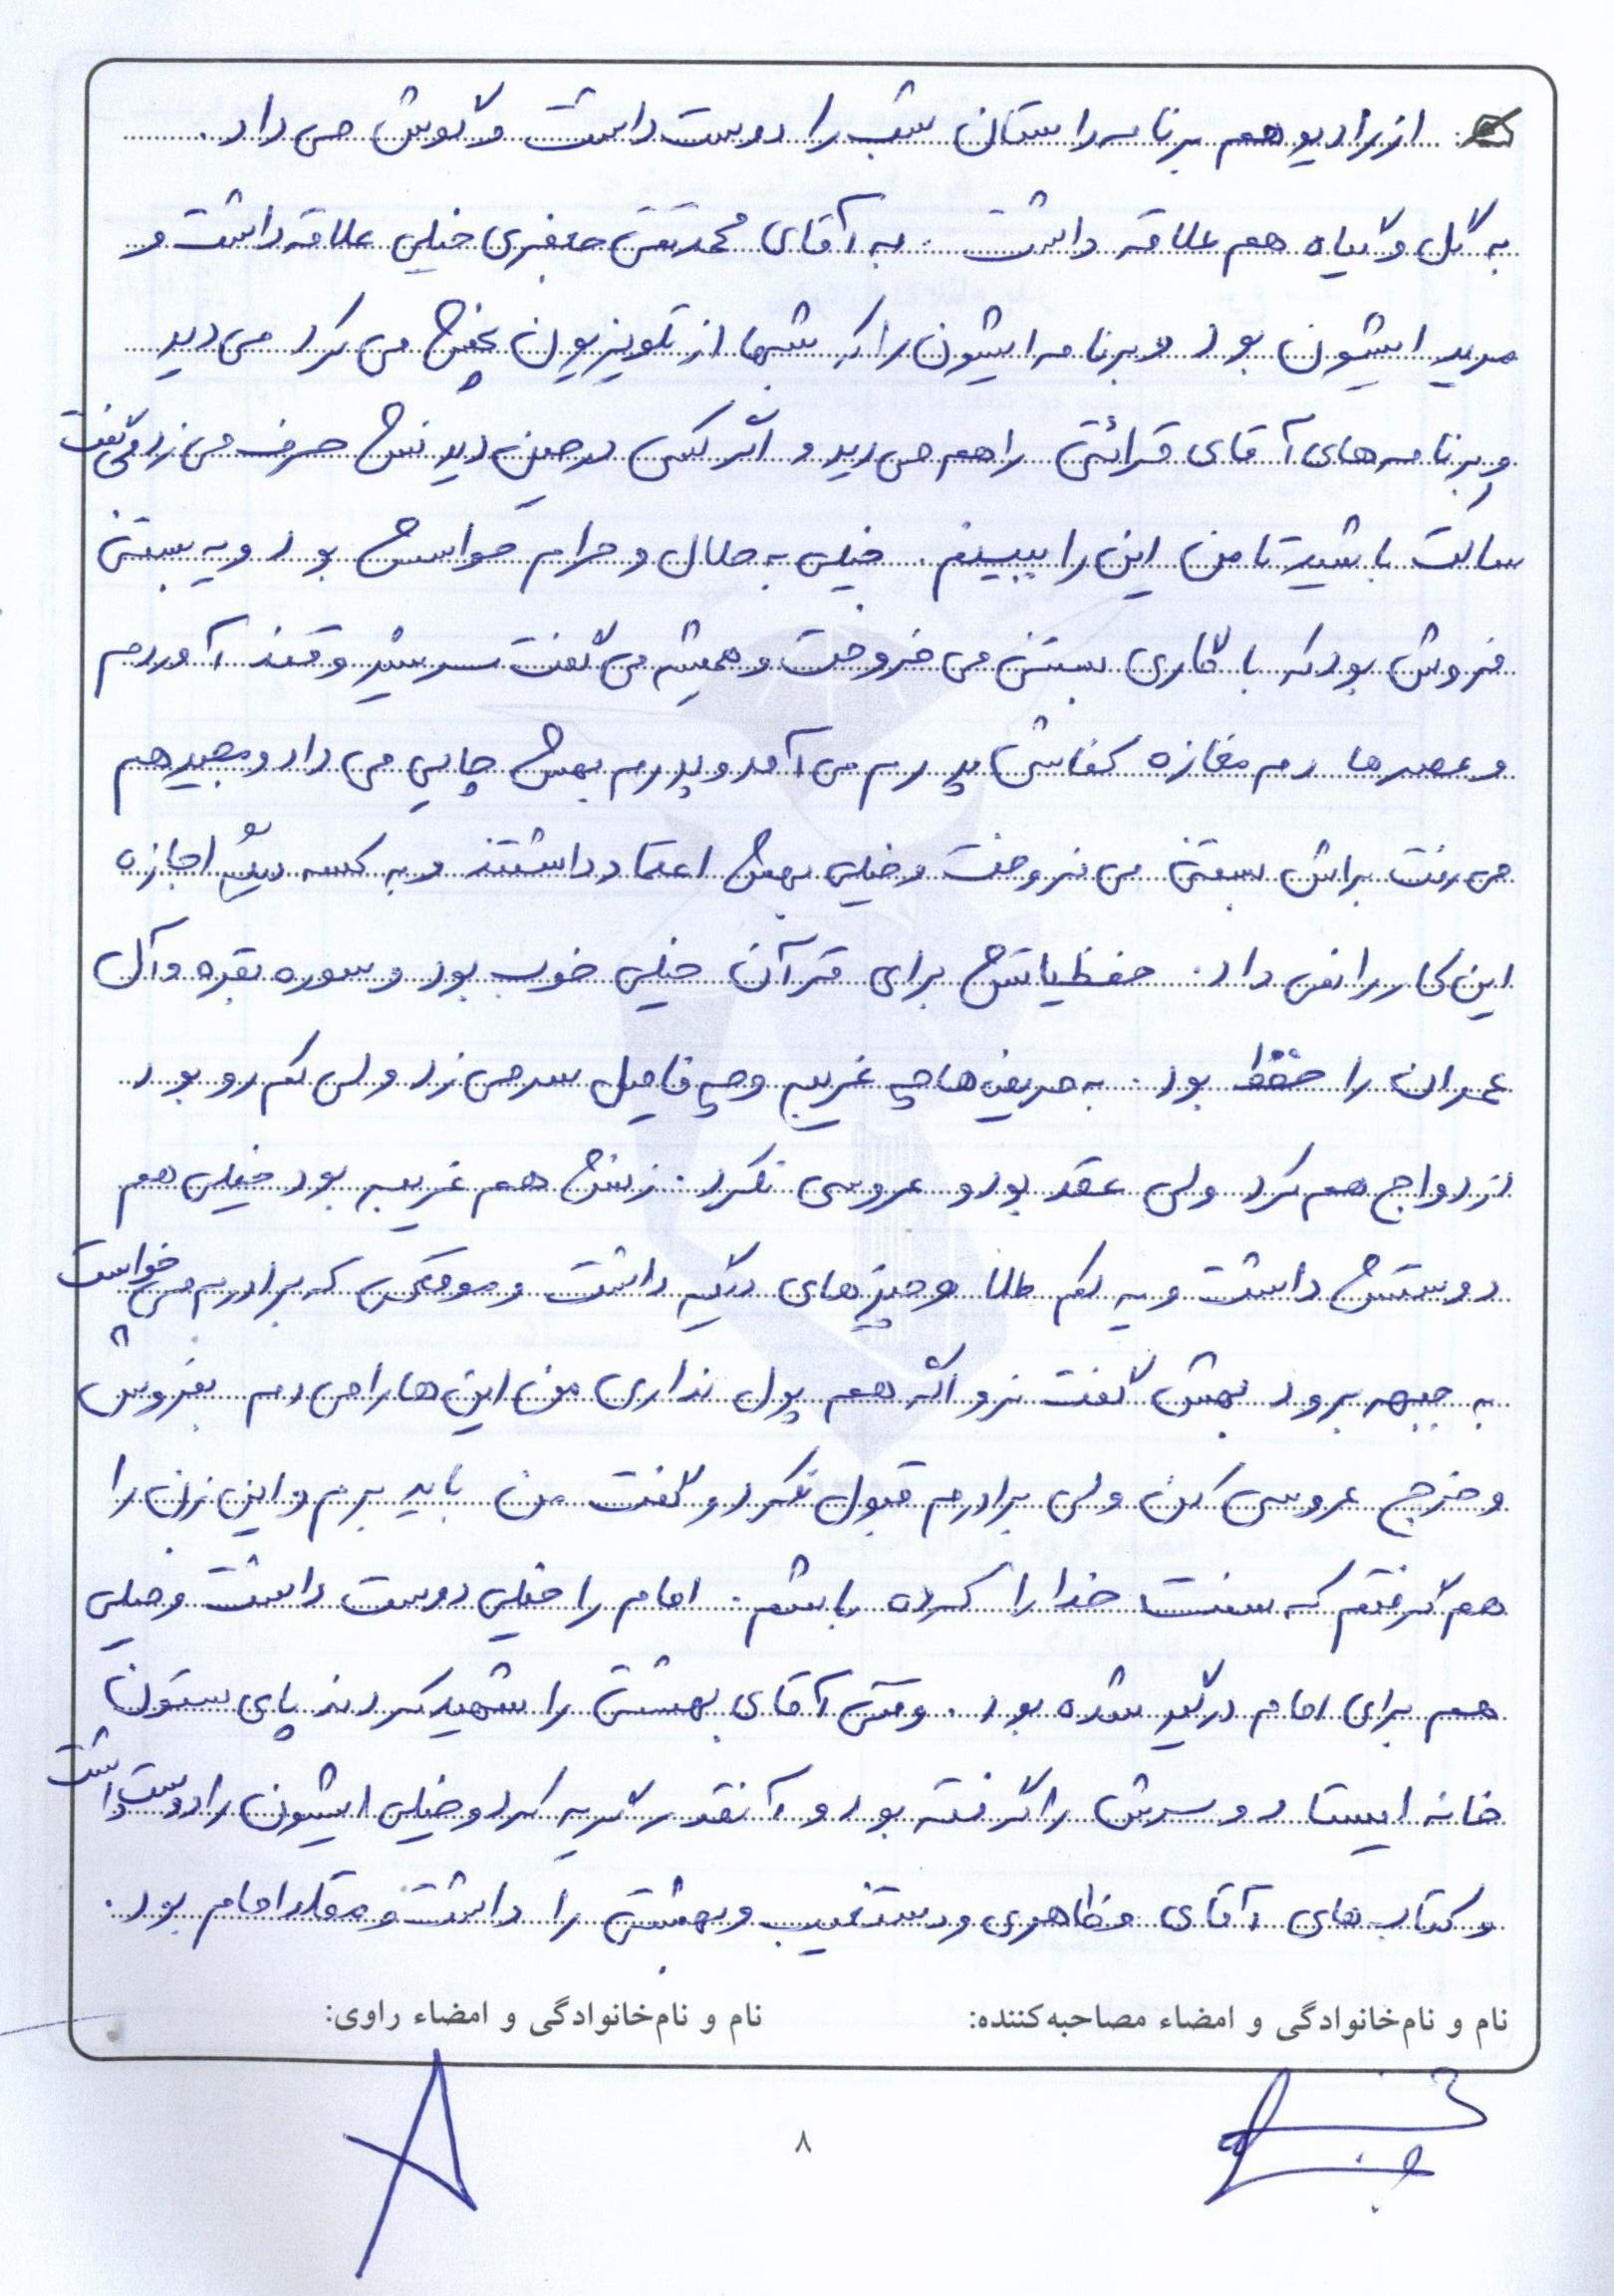 از رادیو هم برنامه داستان شب را دوست داشت و گوش می داد.
به گل و گیاه هم علاقه داشت. به آقای محمدتقی جعفری خیلی علاقه داشت و
مرید ایشون بود و برنامه ایشون را که شبها از تلویزیون پخش می کرد می دید
و برنامه های آقای قرائتی را هم می دید و اگر کسی در حین دیدنش حرف می زد می گفت
ساکت باشید تا من این را ببینم. خیلی به حلال و حرام حواسش بود و یه بستنی
فروش بود که با گاری بستنی می فروخت و همیشه می گفت سرشیر و قند آوردم
و عصرها دم مغازه کفاشی پدرم می آمد و پدرم بهش چایی می داد و مجید هم
می رفت براش بستنی می فروخت و خیلی بهش اعتماد داشتند و به کسه دیگه اجازه
این کار را نمی داد. حفظیاتش برای قرآن خیلی خوب بود و سوره بقره و آل
عمران را حفظ بود. به مریض ها چه غریبه و چه فامیل سر می زد ولی کم رو بود
ازدواج هم کرد ولی عقد بود و عروسی نکرد. زنش هم غریبه بود خیلی هم
دوستش داشت و یه کم طلا و چیزهای دیگه داشت و موقعی که برادرم می خواست
به جبهه برود بهش گفت نرو اگه هم پول نداری من این ها را می دم بفروش
و خرج عروسی کن ولی برادرم قبول نکرد و گفت من باید برم و این زن را
هم گرفتم که سنت خدا را کرده باشم. امام را خیلی دوست داشت و خیلی
هم برای امام درگیر شده بود. وقتی آقای بهشتی را شهید کردند پای ستون
خانه ایستاد و سرش را گرفته بود و آنقدر گریه کرد و خیلی ایشون را دوست داشت
و کتاب های آقای مظاهری و دستغیب و بهشتی را داشت و مقلد امام بود.
نام و نام‌خانوادگی و امضاء مصاحبه‌کننده: نام و نام‌خانوادگی و امضاء راوی:
۸